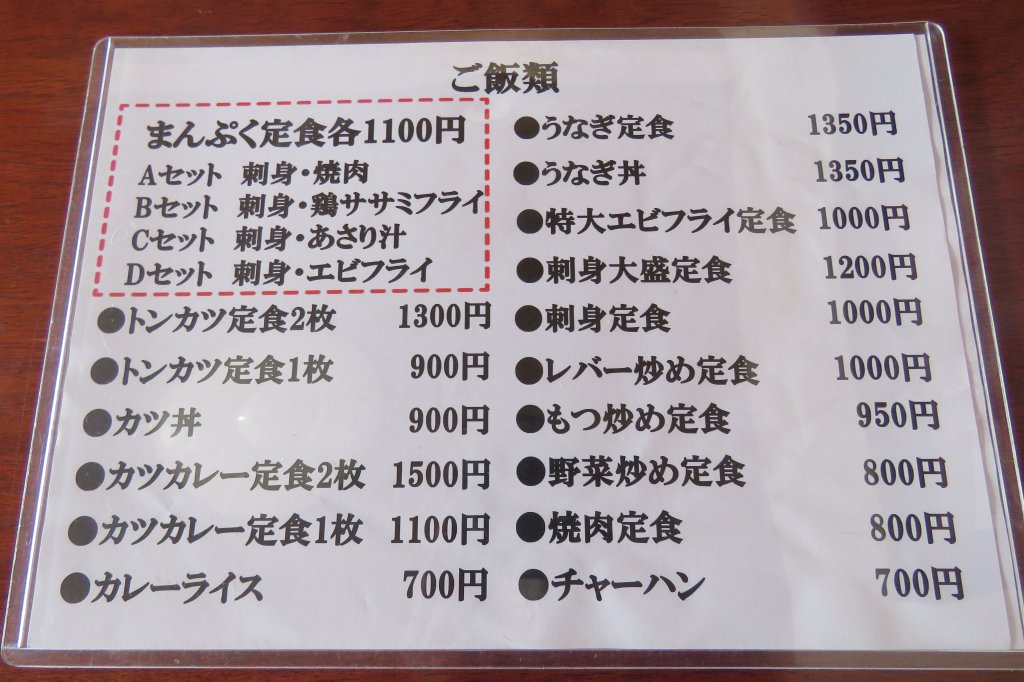 ご飯類
まんぷく定食各1100円
Aセット 刺身・焼肉
Bセット 刺身・鶏ササミフライ
Cセット 刺身・あさり汁
Dセット 刺身・エビフライ
●トンカツ定食2枚 1300円
●トンカツ定食1枚 900円
●カツ丼 900円
●カツカレー定食2枚 1500円
●カツカレー定食1枚 1100円
●カレーライス 700円
●うなぎ定食 1350円
●うなぎ丼 1350円
●特大エビフライ定食 1000円
●刺身大盛定食 1200円
●刺身定食 1000円
●レバー炒め定食 1000円
●もつ炒め定食 950円
●野菜炒め定食 800円
●焼肉定食 800円
●チャーハン 700円